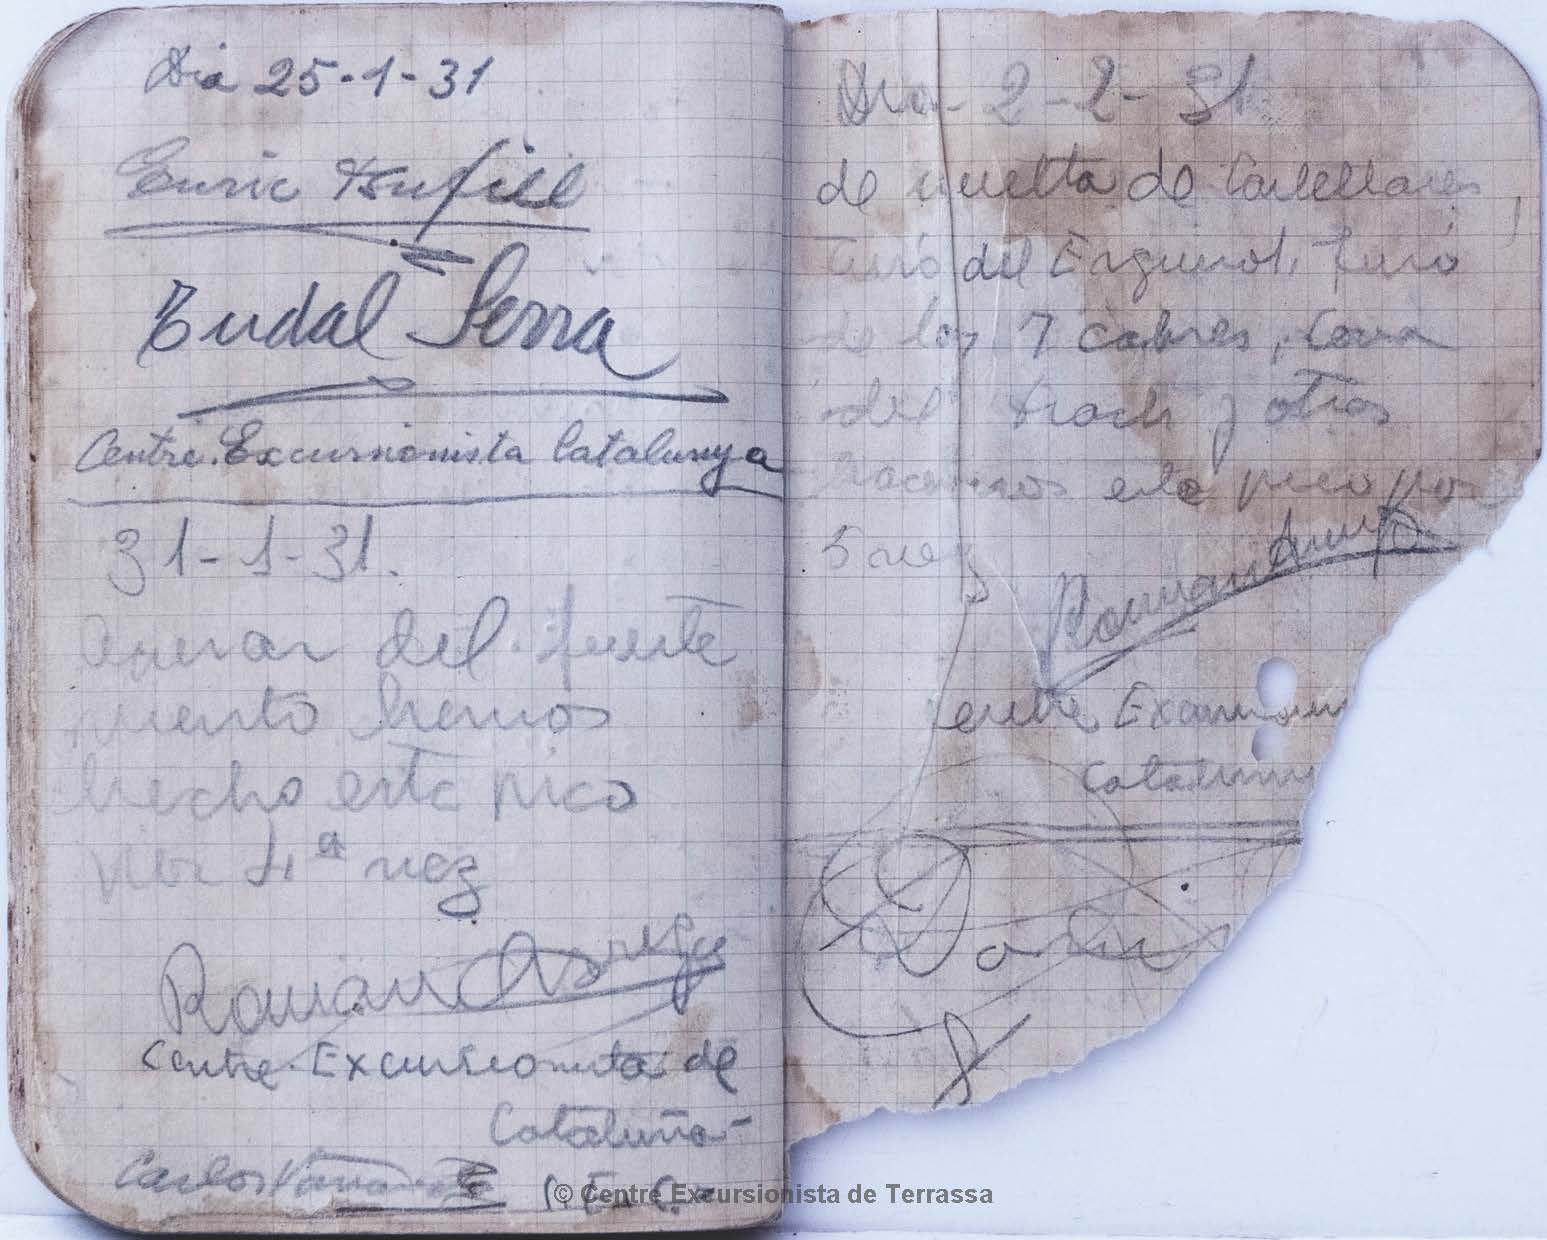 Dia 25-1-31
Enric
Eudal Serra
Centre Excursionista Catalunya
31-1-31.
Apesar del fuerte
viento hemos
hecho este pico
por 4ª vez
Román
Centre Excursionista de
Cataluña-
Carlos
C.E.C.
Dia 2-2-31
de vuelta de Castellares
Turó del Turó
de los 7 cabres,
del y otros
hacemos este pico por
5 vez
Roman
Excursion
Cataluny
© Centre Excursionista de Terrassa